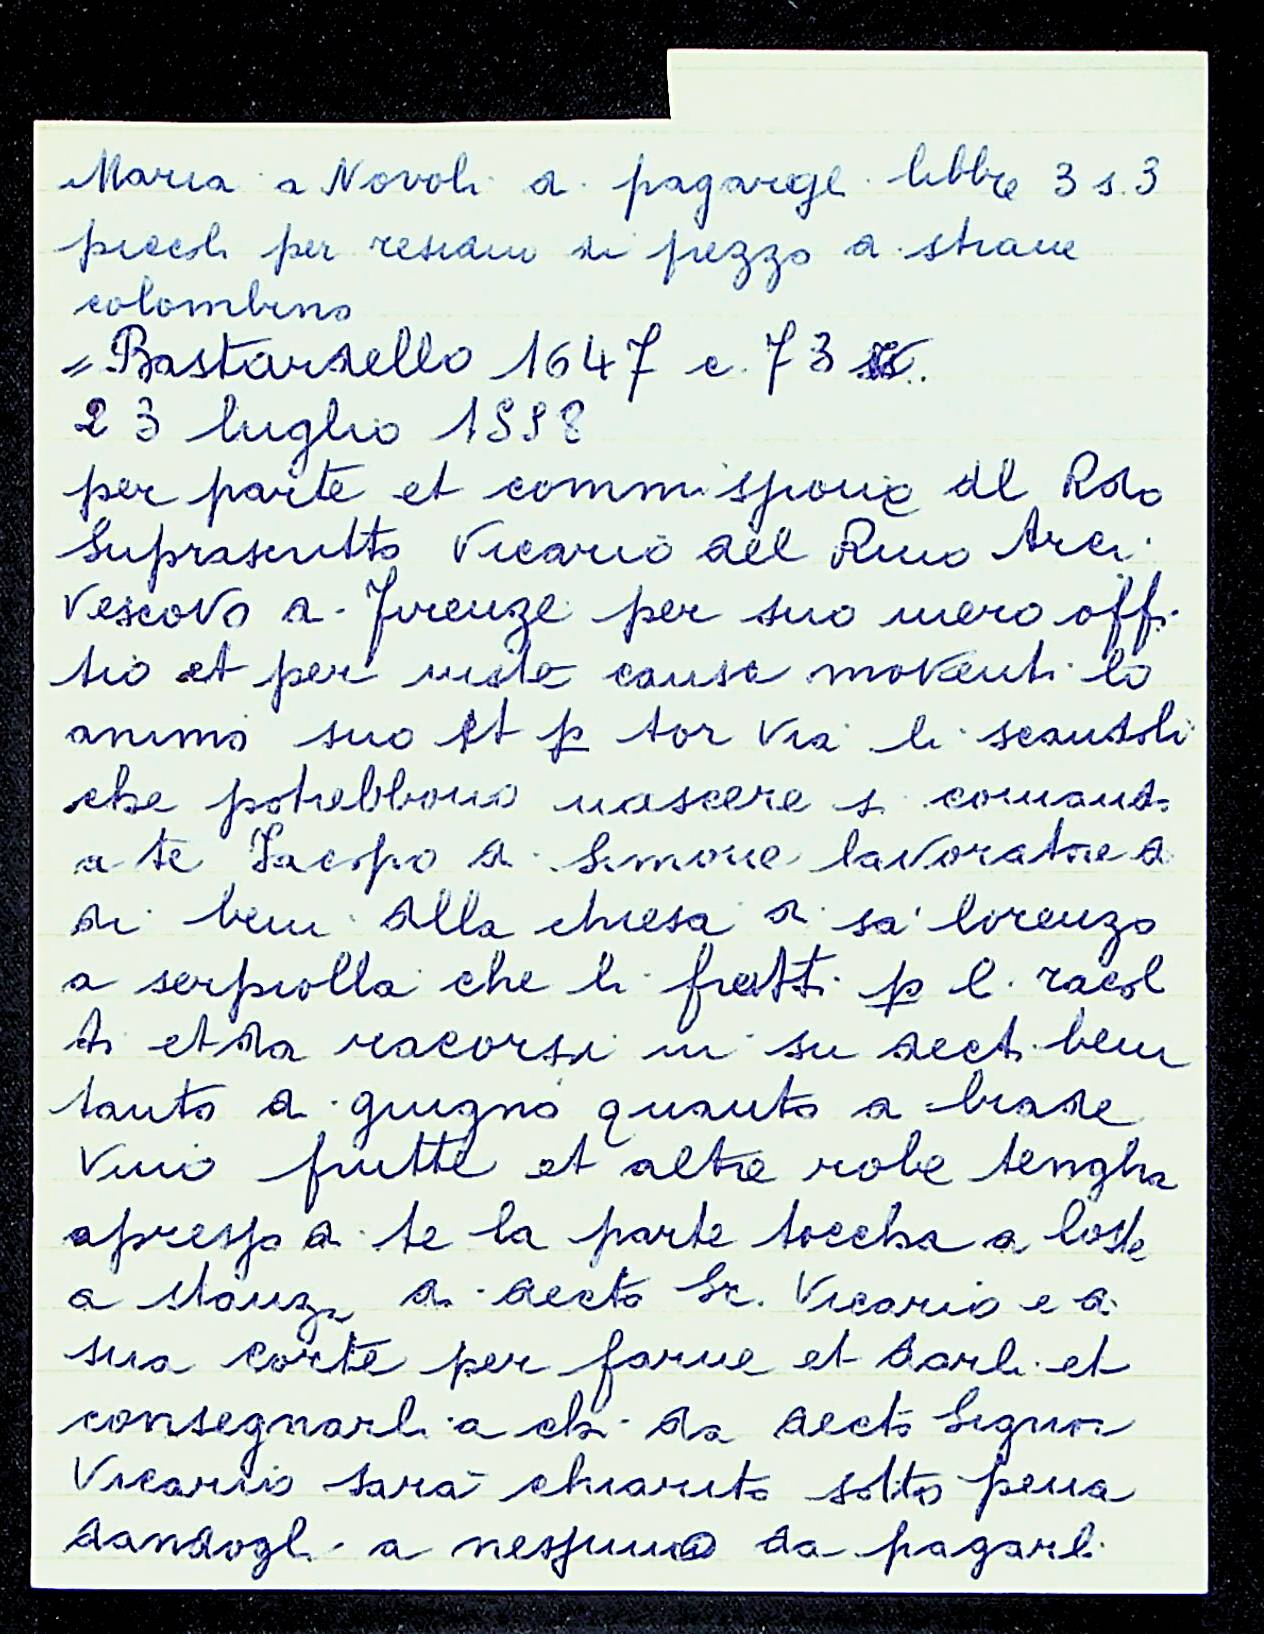 Maria a Novoli di pagargli libbre 3 s. 3
piccoli per residuo di prezzo di strame
colombino
= Bastardello 1647 c. 73
23 luglio 1558
per parte et commissione del Rdo
Suprascritto Vicario del Rmo Arci
vescovo di Firenze per suo mero offi
tio et per iuste cause moventi lo
animo suo et p tor via li scandoli
che potrebbono nascere si comanda
a te Jacopo di Simone lavoratore di
di beni della chiesa di sa' lorenzo
a serpiolla che li frutti p l. racol
ti et da racorsi in su decti beni
tanto di giugno quanto di biade
vino frutte et altre robe tengha
apresso di te la parte toccha a loste
a stanza di decto Sr. Vicario e di
sua corte per farne et darli et
consegnarli a chi da decto Signor
Vicario sarà chiarito sotto pena
dandogli a nessuno da pagarli